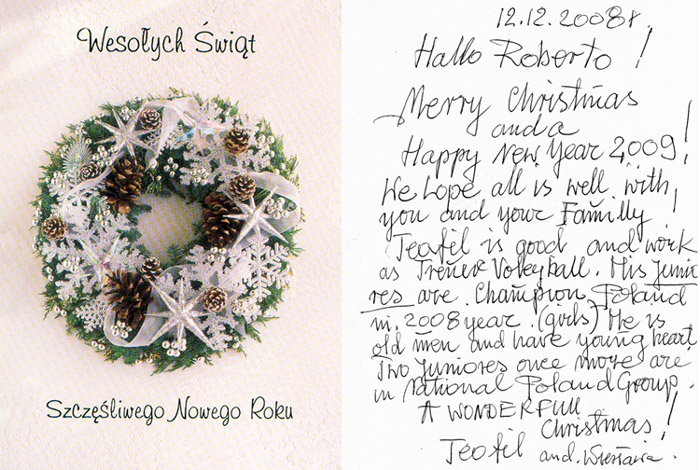 Wesołych Świąt
Szczęśliwego Nowego Roku
12.12.2008r.
Hallo Roberto !
Merry Christmas
and a
Happy New Year 2009!
We hope all is well with
you and your Familly !
Teofil is good and work
as Trener Voleyball. His Junio
res are Champion Poland
in 2008 year (girls) He is
old men and have young heart
Two Juniores once more are
in national Poland Group.
A WONDERFULL
Christmas!
Teofil and